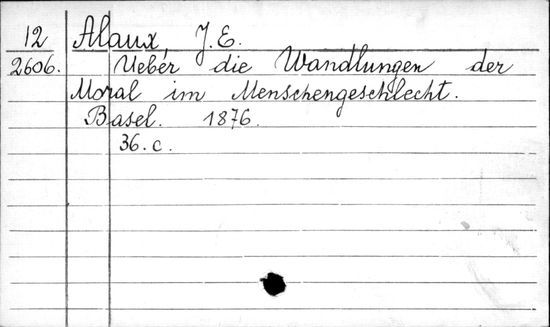 12 Alaux, J. E.
2606. Ueber die Wandlungen der
Moral im Menschengeschlecht.
Basel. 1876.
36. c.